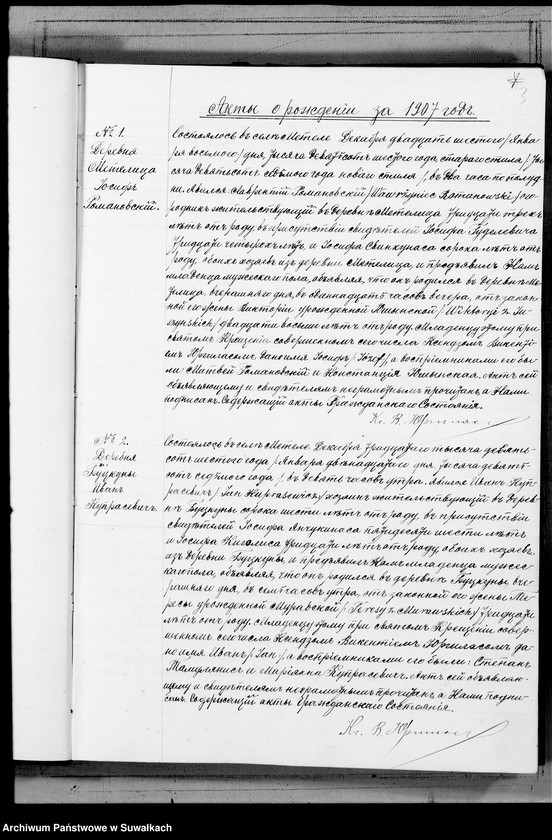 3
Акты о рожденіи за 1907 годъ.
№ 1.
Деревня
Метелица
Іосифъ
Романовскій.
Состоялось въ селѣ Метеле Декабря двадцать шестого /Янва-
ря восьмого/ дня, тысяча девятьсотъ шестого года старого стиля /ты-
сяча девятьсотъ седьмого года новаго стиля/ въ два часа пополуд-
ни. Явился Лаврентій Романовскій /Wawrzyniec Romanowski/
жительствующій въ деревнѣ Метелица тридцати трехъ
лѣтъ отъ роду, въ присутствіи свидѣтелей Іосифа Гуделевича
тридцати четырехъ лѣтъ, и Іосифа Свинкунаса сорока лѣтъ отъ
роду, обоихъ хозяевъ изъ деревни Метелица, и предъявилъ Намъ
младенца мужескаго пола, объявляя, что онъ родился въ деревнѣ Ме-
телица, вчерашняго дня, въ одиннадцать часовъ вечера, отъ закон-
ной его жены Викторіи урожденной /Wiktoryi z
/ двадцати восьми лѣтъ отъ роду. Младенцу этому при
святомъ Крещеніи совершенномъ сего числа Ксендзомъ Викенті-
емъ Юргиласомъ дано имя Іосифъ /Józef/, а воспріемниками его бы-
ли Матвей Романовскій и Констанція. Актъ сей
объявляющему и свидѣтелямъ неграмотнымъ прочитанъ, а Нами
подписанъ. Содержащій акты Гражданскаго Состоянія.
Кс. В. Юргилас
№ 2.
Деревня
Буцкуны
Иванъ
Купрасевичъ.
Состоялось въ селѣ Метеле Декабря тридцатаго тысяча девять-
сотъ шестого года /Января двѣнадцатаго дня, тысяча девять-
сотъ седьмого года/, въ девять часовъ утра. Явился Иванъ Куп-
расевичъ /Jan Kuprasewicz/ хозяинъ жительствующій въ дерев-
нѣ Буцкуны сорока шести лѣтъ отъ роду, въ присутствіи
свидѣтелей Іосифа Анчукинаса пятидесяти шести лѣтъ
и Іосифа тридцати лѣтъ отъ роду, обоихъ хозяевъ
изъ деревни Буцкуны, и предъявилъ Намъ младенца мужес-
каго пола, объявляя, что онъ родился въ деревнѣ Буцкуны вче-
рашняго дня, въ семь часовъ утра, отъ законной его жены Те-
ресы урожденной Муравской /Teresy z Murawskich/ тридцати
лѣтъ отъ роду. Младенцу этому при святомъ Крещеніи совер-
шенномъ сего числа Ксендзомъ Викентіемъ Юргиласомъ да-
но имя Иванъ /Jan/, а воспріемниками его были: Степанъ
и Маріанна Купрасевичъ. Актъ сей объявляю-
щему и свидѣтелямъ неграмотнымъ прочитанъ, а Нами подпи-
санъ. Содержащій акты Гражданскаго Состоянія.
Кс. В. Юргилас
Archiwum Państwowe w Suwałkach